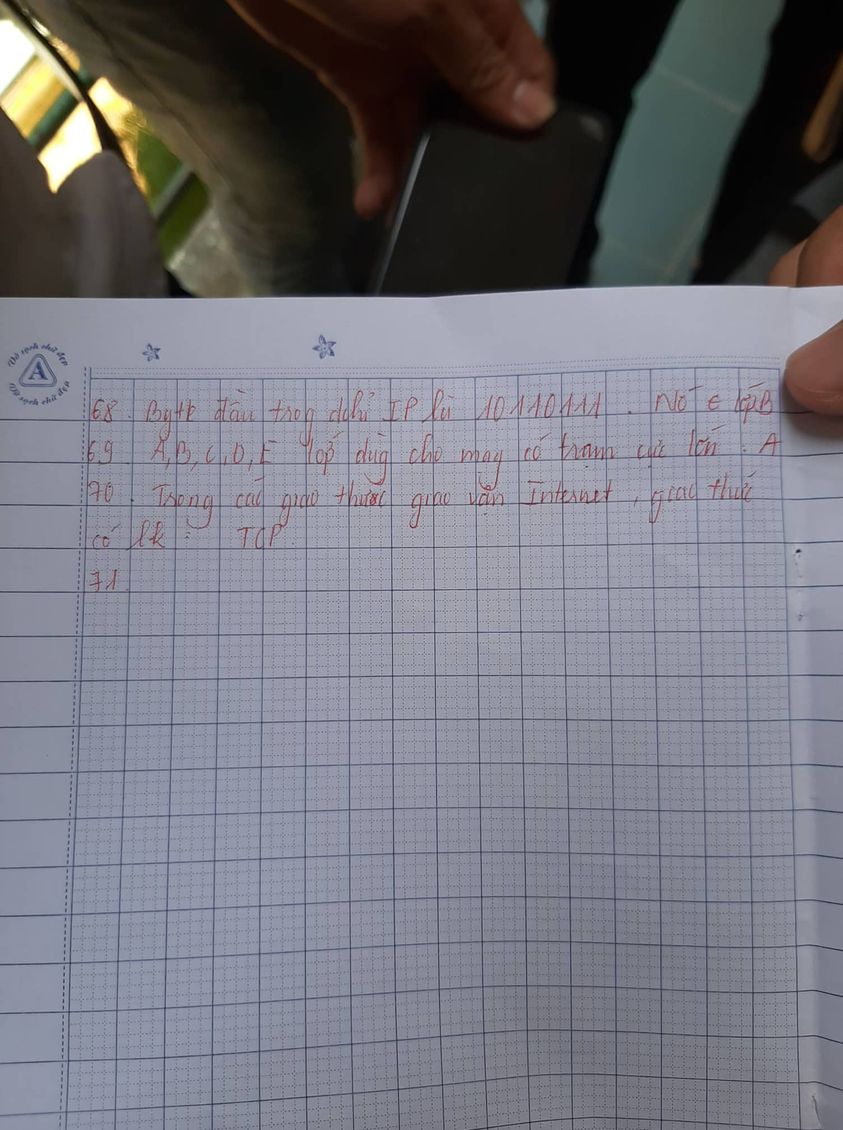 Vở sạch chữ đẹp
A
Vở sạch chữ đẹp
68. Byte đầu trog đchỉ IP là 10110111. Nó ∈ lớp B
69. A, B, C, D, E lớp dùg cho mạg có trạm cực lớn: A
70. Trong các giao thức giao vận Internet, giao thức
có lk: TCP
71.